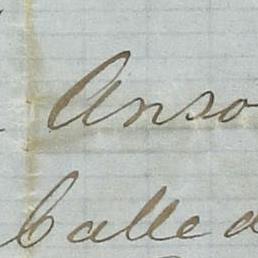 Anso
Calle d